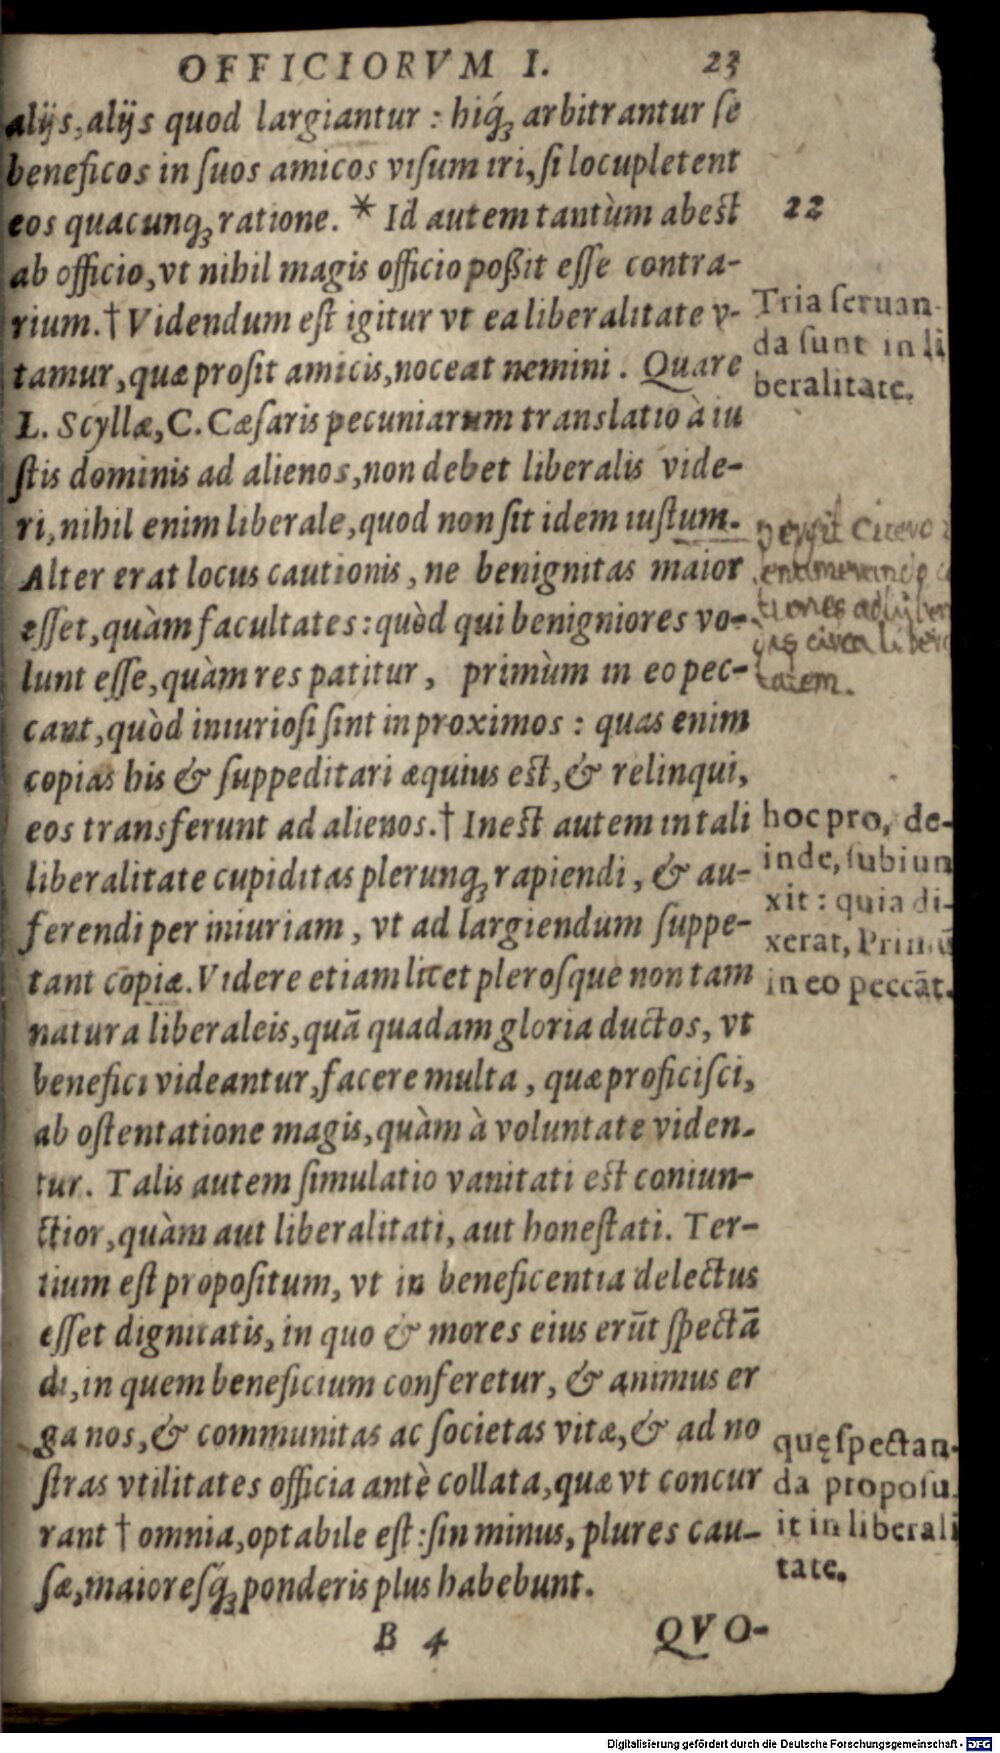 OFFICIORVM I. 23
alijs, alijs quod largiantur : hiq́ꝫ arbitrantur ſe
beneficos in ſuos amicos viſum iri, ſi locupletent
eos quacunqꝫ ratione. * Id autem tantùm abest
ab officio, vt nihil magis officio poßit eſſe contra-
rium. † Videndum eſt igitur vt ea liberalitate v-
tamur, quæ proſit amicis, noceat nemini. Quare
L. Scyllæ, C. Cæſaris pecuniarum translatio à iu
ſtis dominis ad alienos, non debet liberalis vide-
ri, nihil enim liberale, quod non ſit idem iuſtum.
Alter erat locus cautionis, ne benignitas maior
eſſet, quàm facultates : quòd qui benigniores vo-
lunt eſſe, quàm res patitur, primùm in eo pec-
cant, quòd iniurioſi ſint in proximos : quas enim
copias his & ſuppeditari æquius est, & relinqui,
eos transferunt ad alienos. † Inest autem in tali
liberalitate cupiditas plerunqꝫ rapiendi, & au-
ferendi per iniuriam, vt ad largiendum ſuppe-
tant copiæ. Videre etiam licet pleroſque non tam
natura liberaleis, quā quadam gloria ductos, vt
benefici videantur, facere multa, quæ proficiſci,
ab oſtentatione magis, quàm à voluntate viden-
tur. Talis autem ſimulatio vanitati est coniun-
ctior, quàm aut liberalitati, aut honeſtati. Ter-
tium eſt propoſitum, vt in beneficentia delectus
eſſet dignitatis, in quo & mores eius erūt ſpectā
di, in quem beneficium conferetur, & animus er
ga nos, & communitas ac ſocietas vitæ, & ad no
ſtras vtilitates officia antè collata, quæ vt concur
rant † omnia, optabile eſt : ſin minus, plures cau-
ſæ, maioreſq́ꝫ ponderis plus habebunt.
B 4 QVO-
22
Tria ſeruan-
da ſunt in li
beralitate.
Cicero
tiones
circa
tatem.
hoc pro, de-
inde, ſubiun
xit : quia di-
xerat, Primū
in eo peccāt.
quę ſpectan-
da propoſu-
it in liberali
tate.
Digitalisierung gefördert durch die Deutsche Forschungsgemeinschaft - DFG